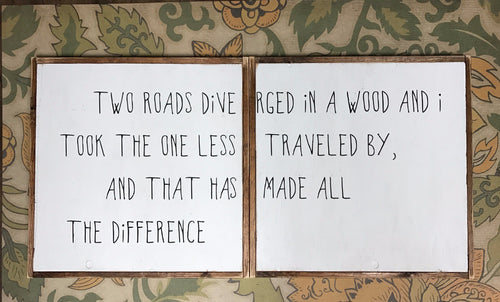 TWO ROADS DiVERGED iN A WOOD AND i
TOOK THE ONE LESS TRAVELED BY,
AND THAT HAS MADE ALL
THE DiFFERENCE